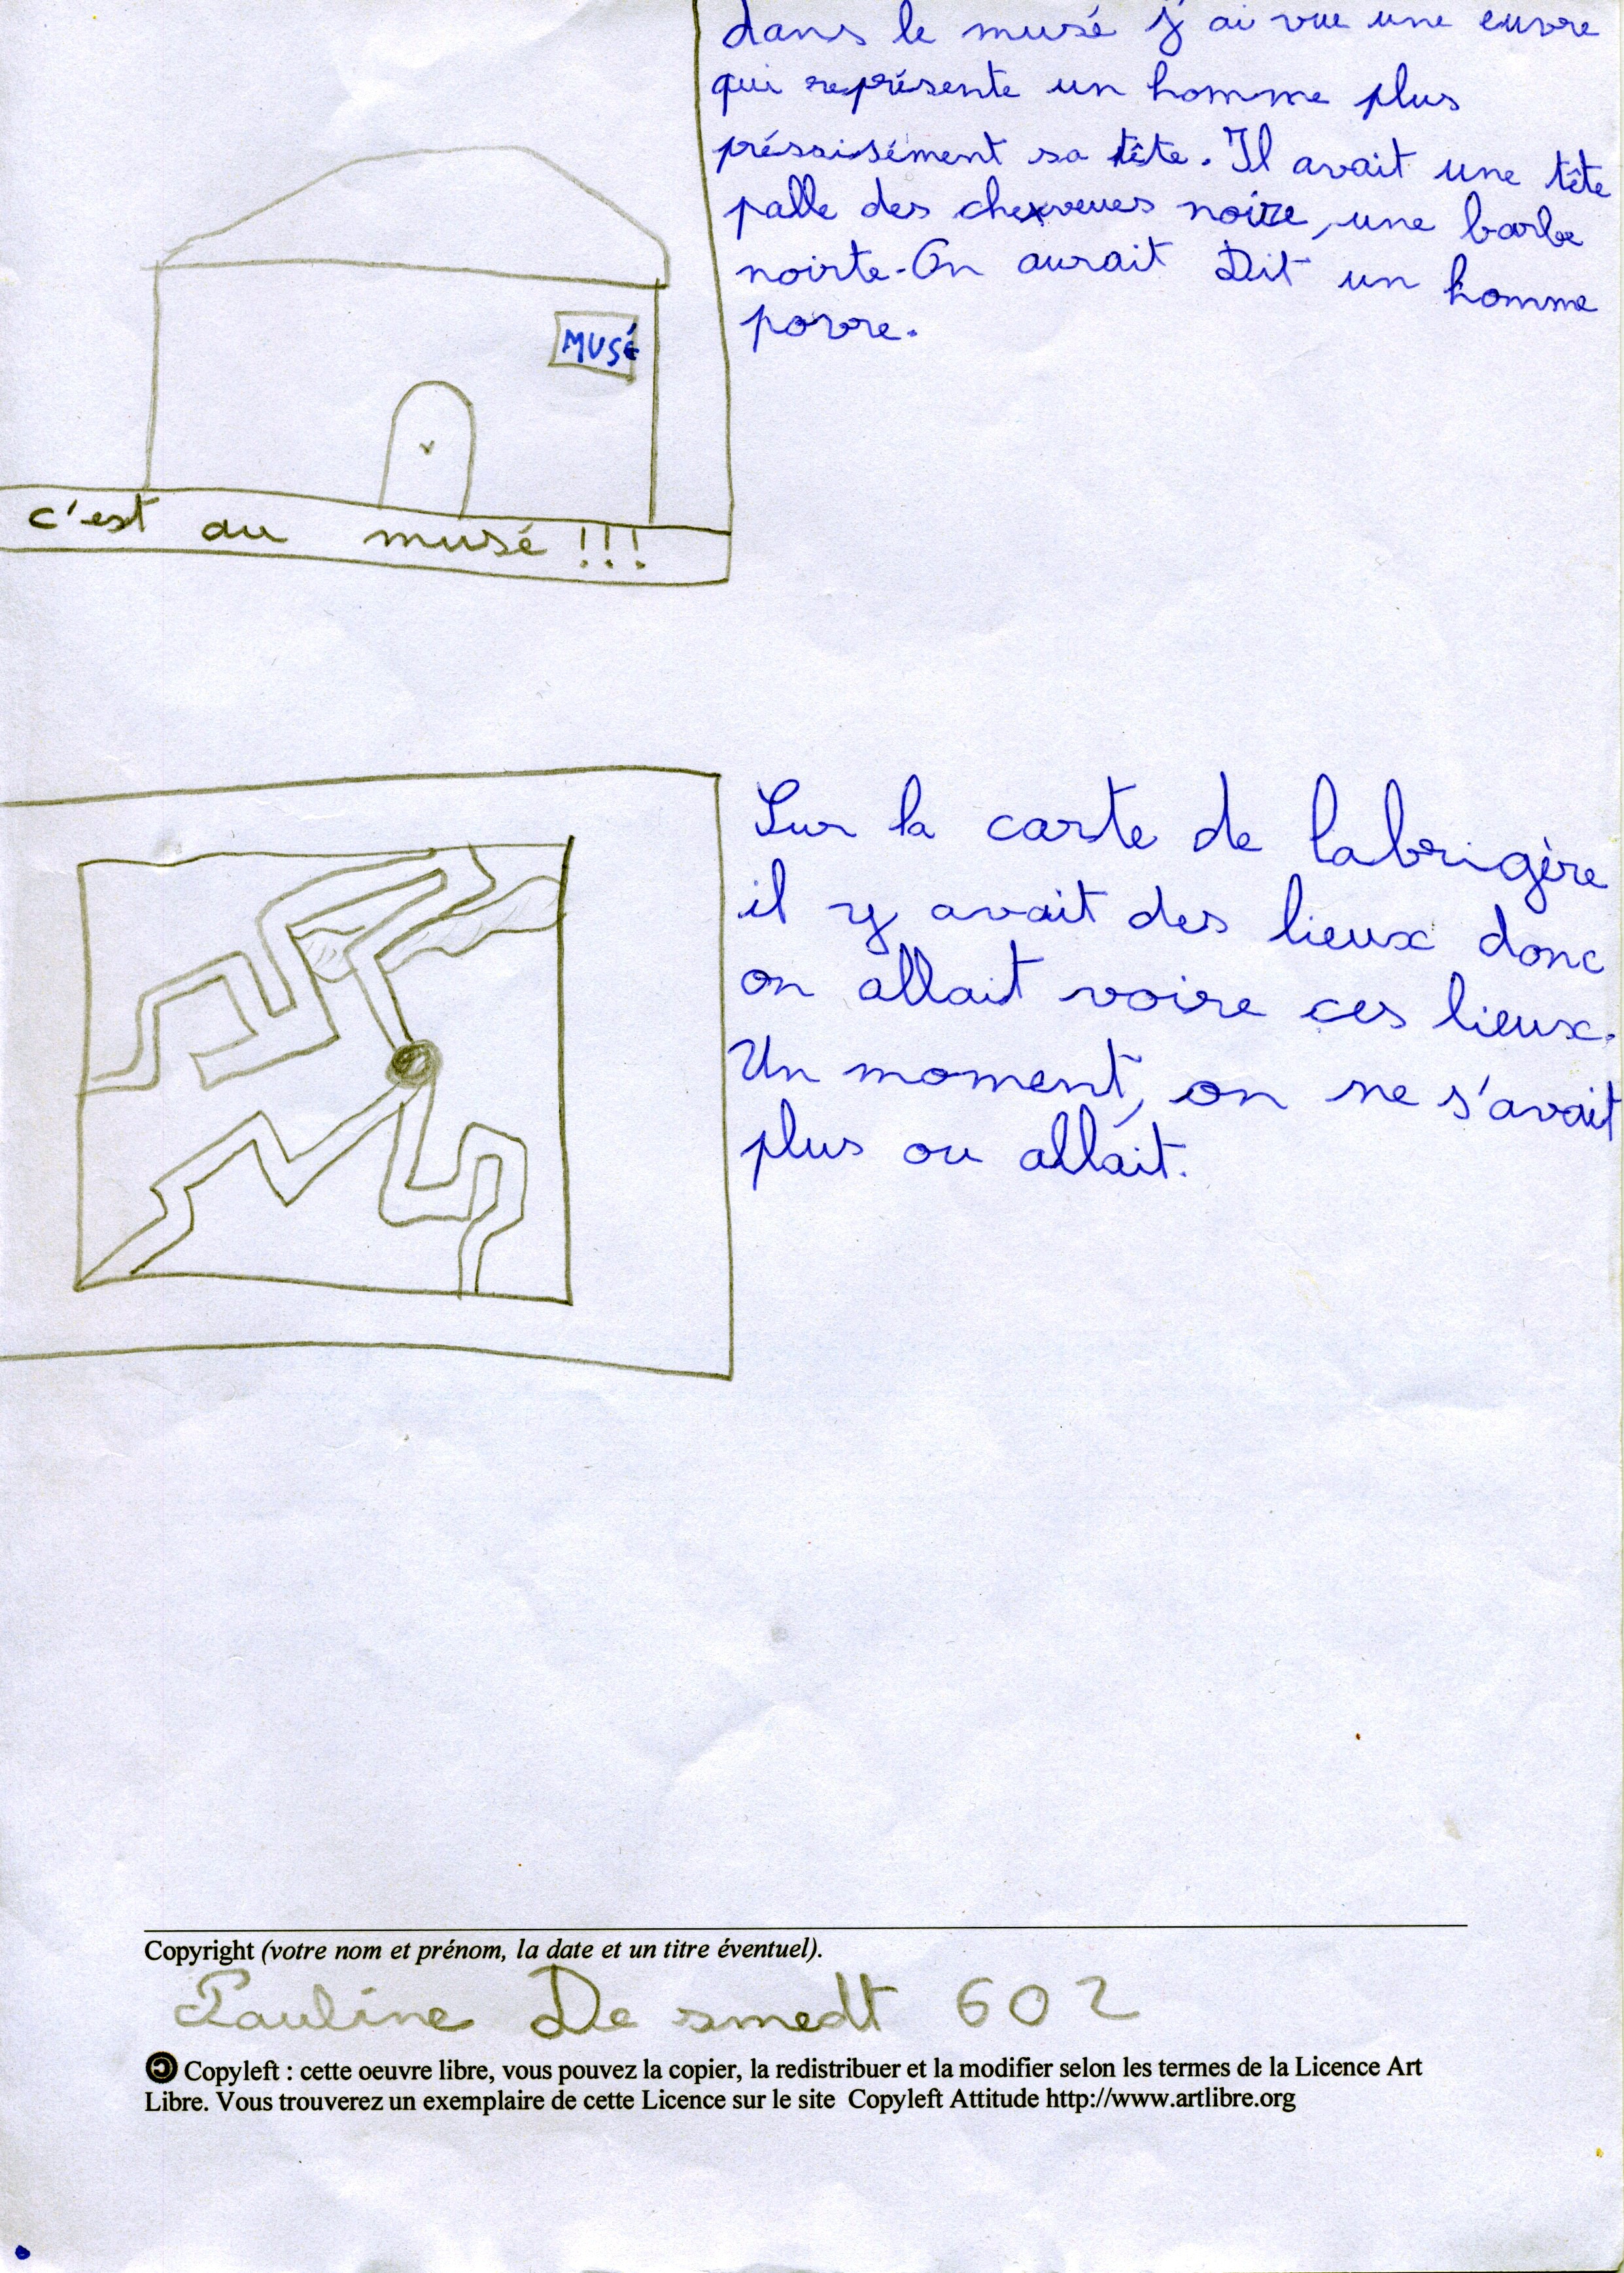 dans le musé j'ai vue une euvre
qui représente un homme plus
préssisément sa tête. Il avait une tête
palle des cheveues noire, une barbe
noirte. On aurait Dit un homme
povre.
MUSé
c'est au musé !!!
Sur la carte de labrigère
il y avait des lieux donc
on allait voire ces lieux.
Un moment, on ne s'avait
plus ou allait.
Copyright (votre nom et prénom, la date et un titre éventuel).
Pauline De smedt 602
Copyleft : cette oeuvre libre, vous pouvez la copier, la redistribuer et la modifier selon les termes de la Licence Art
Libre. Vous trouverez un exemplaire de cette Licence sur le site Copyleft Attitude http://www.artlibre.org